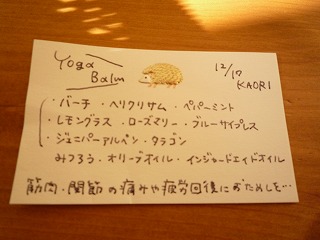 Yoga Balm
12/17
KAORI
・バーチ ・ヘリクリサム ・ペパーミント
・レモングラス ・ローズマリー ・ブルーサイプレス
・ジュニパーアルペン ・タラゴン
みつろう ・オリーブオイル ・インジャードエイドオイル
筋肉・関節の痛みや疲労回復におためしを…